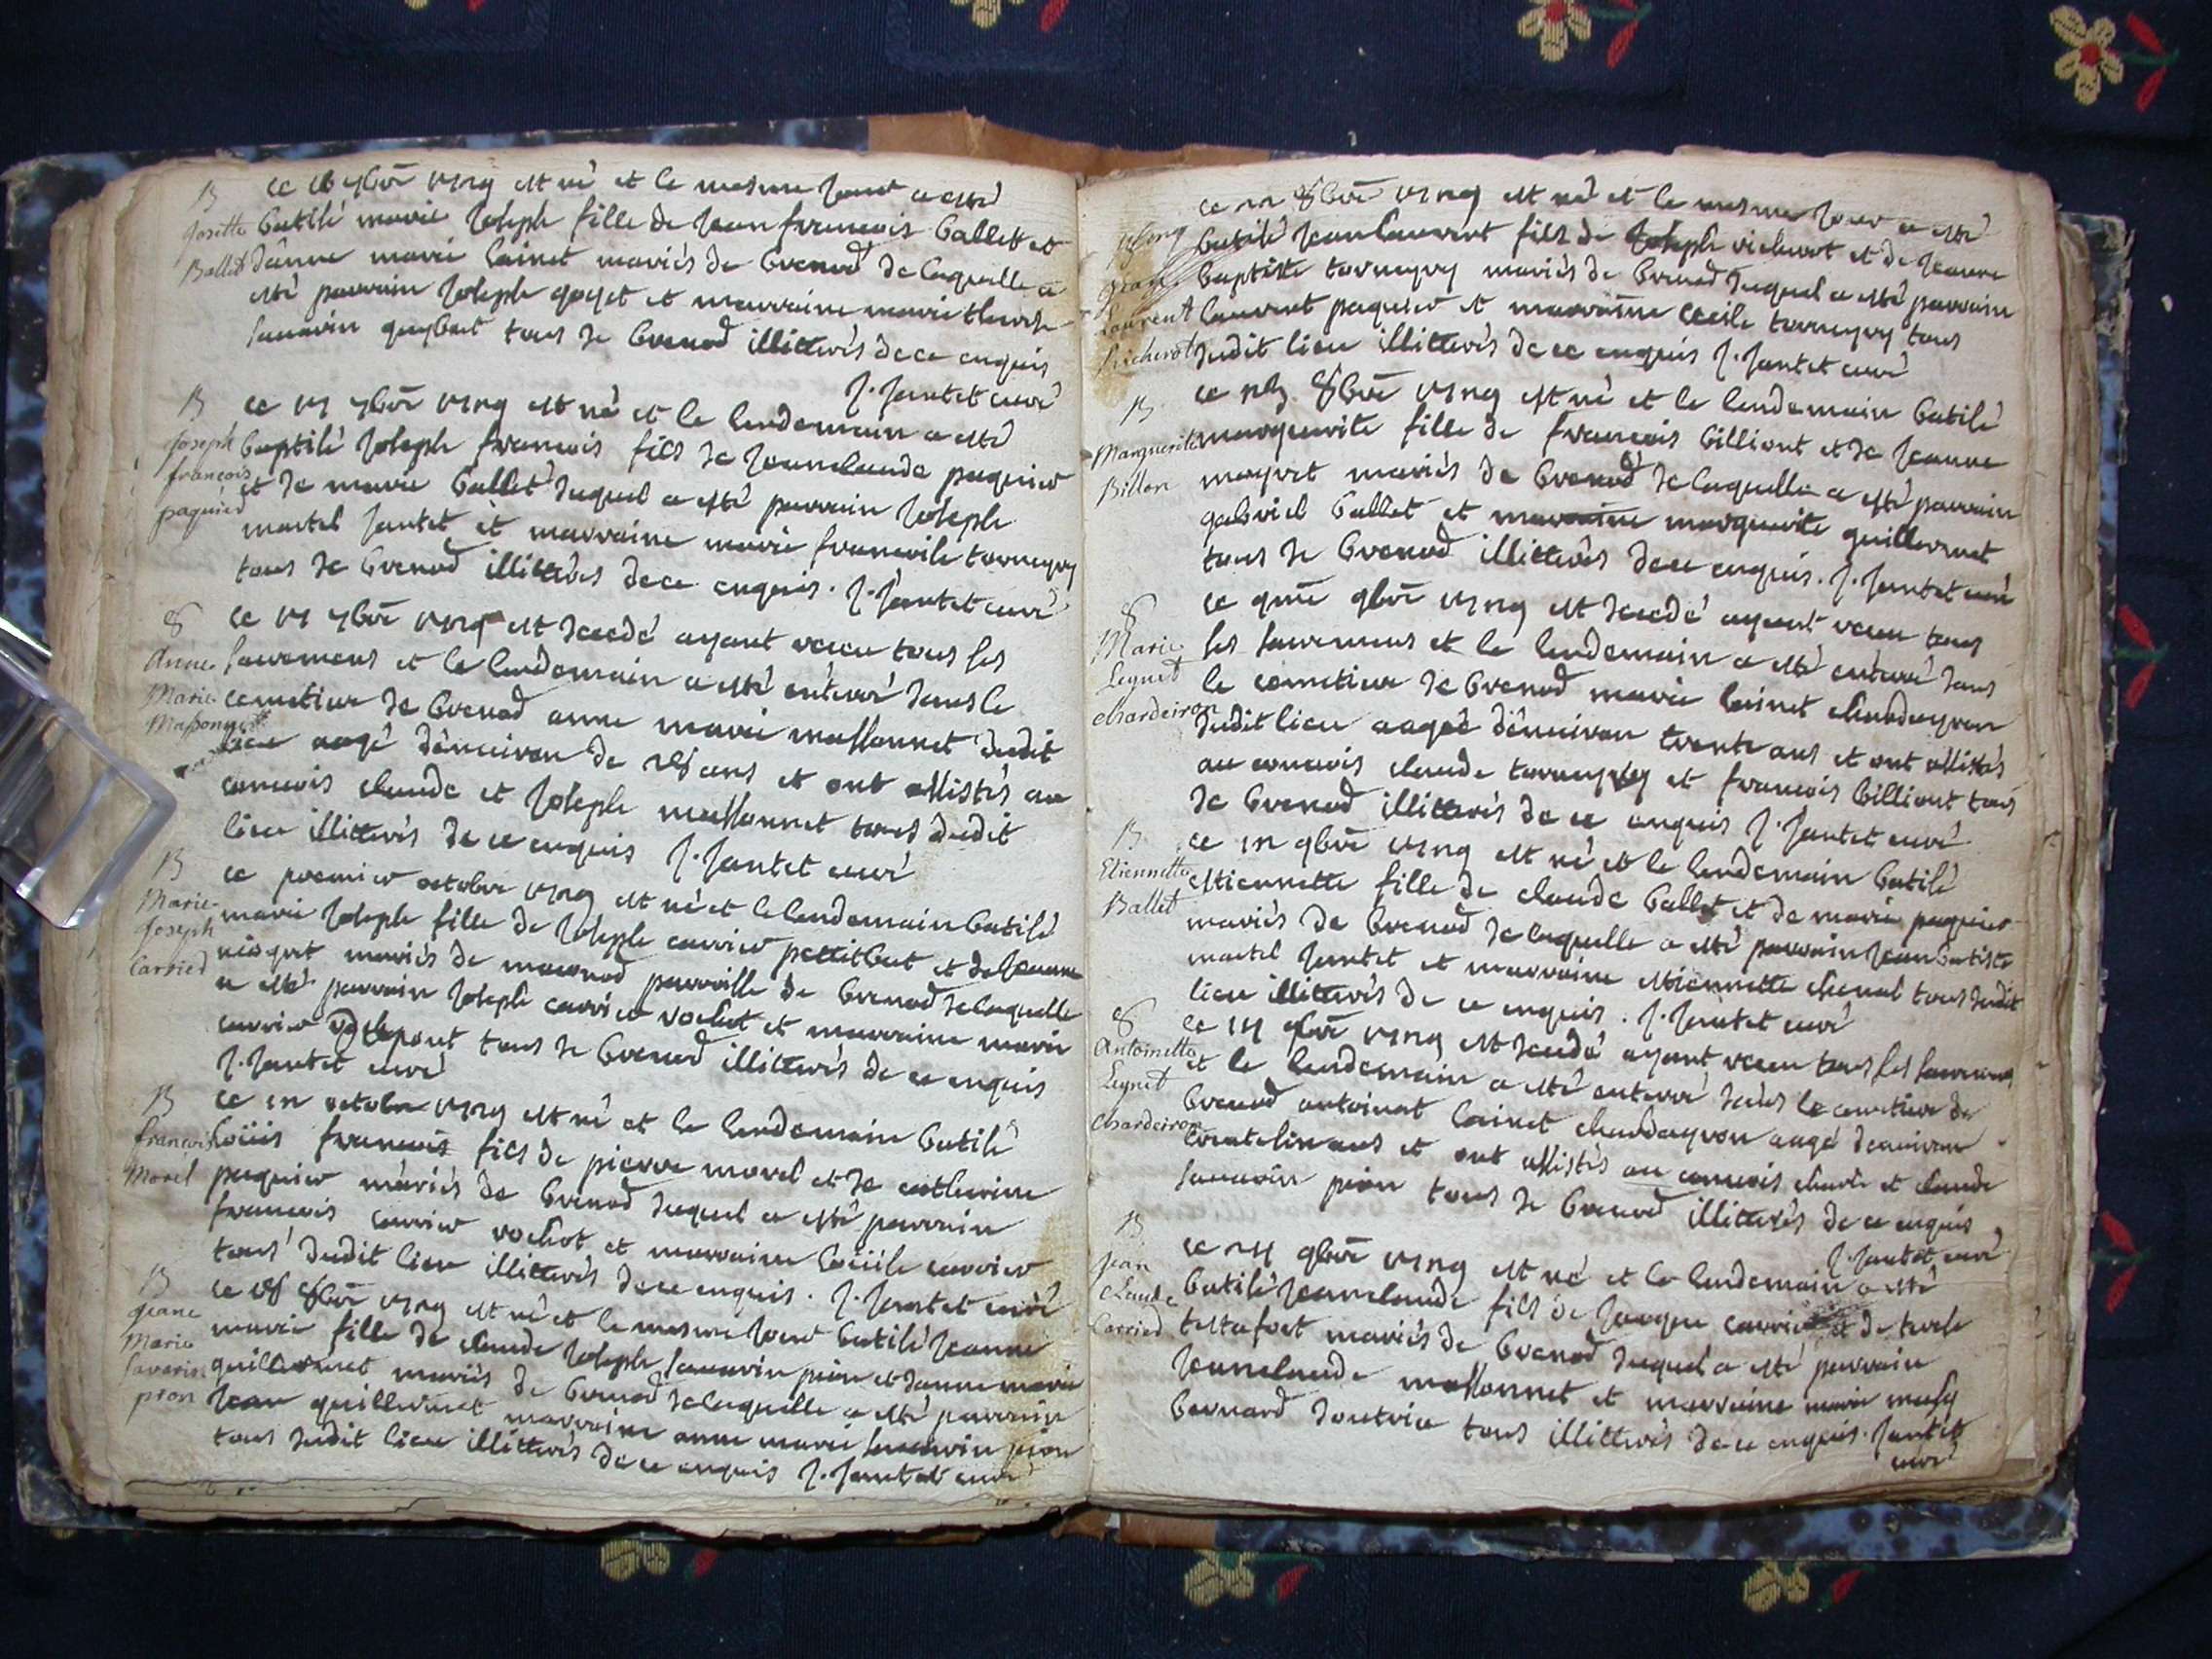 B
Josette
Ballet
ce 7bre est né et le mesme jour a esté
batisé marie Joseph fille de Jean francois ballet et
danne marie lainet mariés de brenod de laquelle a
esté parrain Joseph goyet et marraine marie therese
sauarin tous de brenod illitterés de ce enquis
J. Jantet curé
B
Joseph
francois
paquied
ce 7bre est né et le lendemain a esté
baptisé Joseph francois fils de Jeanclaude paquier
et de marie ballet duquel a esté parrain Joseph
martel Jantet et marraine marie francoise torneyry
tous de brenod illitterés de ce enquis. J. Jantet curé
Anne
Marie
Massonnet
ce 7bre est decedé ayant receu tous les
sacremens et le lendemain a esté enterré dans le
cemetiere de brenod anne marie massonnet dudit
lieu aagé denuiron de ans et ont assistés au
conuois claude et Joseph massonnet tous dudit
lieu illitterés de ce enquis J. Jantet curé
B
Marie
Joseph
Carried
ce premier octobre est né et le lendemain batisé
marie Joseph fille de Joseph carrier pettitbut et de Jeanne
mariés de maconod parroisse de brenod de laquelle
a esté parrain Joseph carrier vochot et marraine marie
carrier tous de brenod illitterés de ce enquis
J. Jantet curé
B
francois
Morel
ce octobre est né et le lendemain batisé
loüis francois fils de pierre morel et de catherine
paquier mariés de brenod duquel a esté parrain
francois carrier vochot et marraine loüise carrier
tous dudit lieu illitterés de ce enquis. J. Jantet curé
B
Jeane
Marie
Savarin
pion
ce 8bre est né et le mesme jour batisé Jeanne
marie fille de claude Joseph sauarin pion et danne marie
guillermet mariés de brenod de laquelle a esté parrain
Jean guillermet marraine anne marie sauarin pion
tous dudit lieu illitterés de ce enquis J. Jantet curé
Jean
Laurent
Richerot
ce 8bre est né et le mesme jour a esté
batisé Jean laurent fils de Joseph richerot et de Jeanne
baptiste torneyry mariés de brenod duquel a esté parrain
laurent paquier et marraine cecile torneyry tous
dudit lieu illitterés de ce enquis J. Jantet curé
B
Marguerite
Billon
ce 8bre est né et le lendemain batisé
marguerite fille de francois billiont et de Jeanne
mariés de brenod de laquelle a esté parrain
gabriel ballet et marraine marguerite guillermet
tous de brenod illitterés de ce enquis. J. Jantet curé
Marie
Leynet
chardeiron
ce 9bre est decedé ayant receu tous
les sacremens et le lendemain a esté enterré dans
le cemetiere de brenod marie lainet chardeyron
dudit lieu aageé denuiron trente ans et ont assistés
au conuois claude torneyry et francois billiont tous
de brenod illitterés de ce enquis J. Jantet curé
B
Etiennette
Ballet
ce 9bre est né et le lendemain batisé
estiennette fille de claude ballet et de marie paquier
mariés de brenod de laquelle a esté parrain Jean batiste
martel Jantet et marraine estiennette tous dudit
lieu illitterés de ce enquis. J. Jantet curé
Antoinette
Leynet
chardeiron
ce 9bre est decedé ayant receu tous les sacremens
et le lendemain a esté enterré dans le cemetiere de
brenod antoinat lainet chardayron aagé denuiron
ans et ont assistés au conuois charle et claude
sauarin pion tous de brenod illitterés de ce enquis
J. Jantet curé
B
Jean
Claude
Carried
ce 9bre est né et le lendemain a esté
batisé Jeanclaude fils de Jacque carrier et de
mariés de brenod duquel a esté parrain
Jeanclaude massonnet et marraine marie
bernard tous illitterés de ce enquis. Jantet
curé